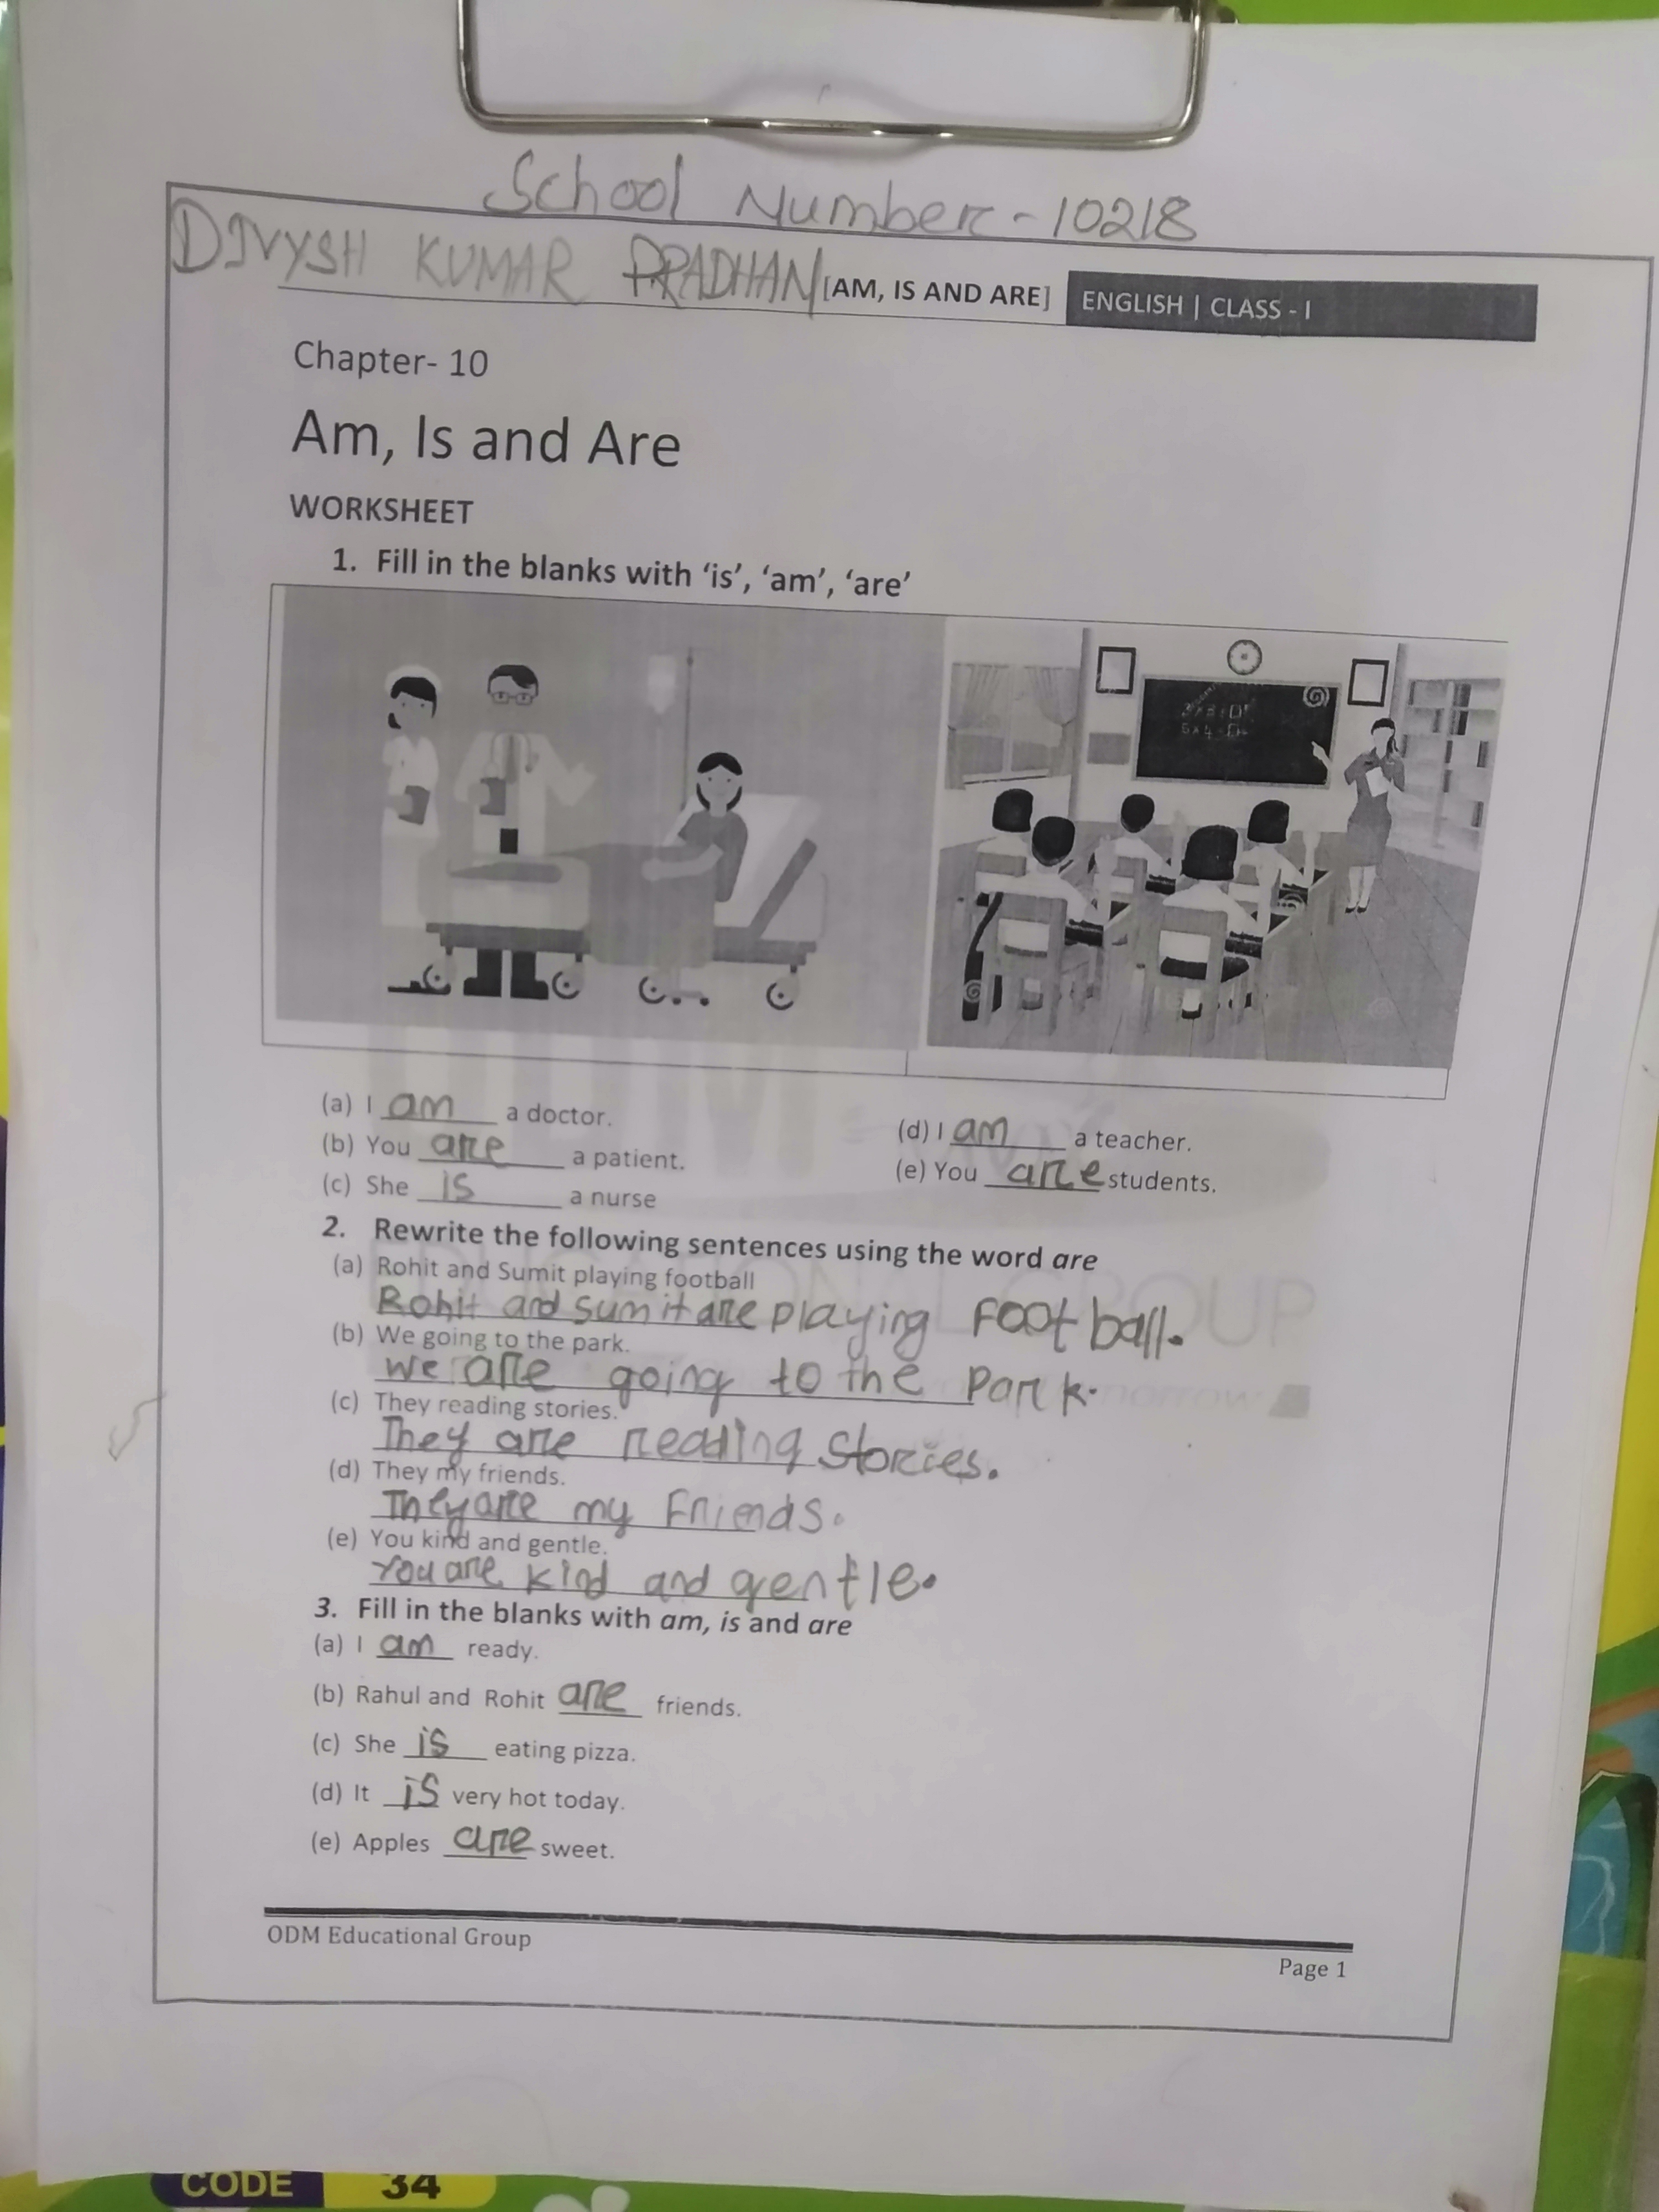 School Number - 10218
DIVYSH KUMAR PRADHAN [AM, IS AND ARE] ENGLISH | CLASS - I
Chapter- 10
Am, Is and Are
WORKSHEET
1. Fill in the blanks with ‘is’, ‘am’, ‘are’
(a) I am a doctor.
(b) You are a patient.
(c) She is a nurse
(d) I am a teacher.
(e) You are students.
2. Rewrite the following sentences using the word are
(a) Rohit and Sumit playing football
Rohit and sumit are playing Football.
(b) We going to the park.
we are going to the park.
(c) They reading stories.
They are reading stories.
(d) They my friends.
They are my Friends.
(e) You kind and gentle.
You are kind and gentle.
3. Fill in the blanks with am, is and are
(a) I am ready.
(b) Rahul and Rohit are friends.
(c) She is eating pizza.
(d) It is very hot today.
(e) Apples are sweet.
ODM Educational Group
Page 1
CODE 34